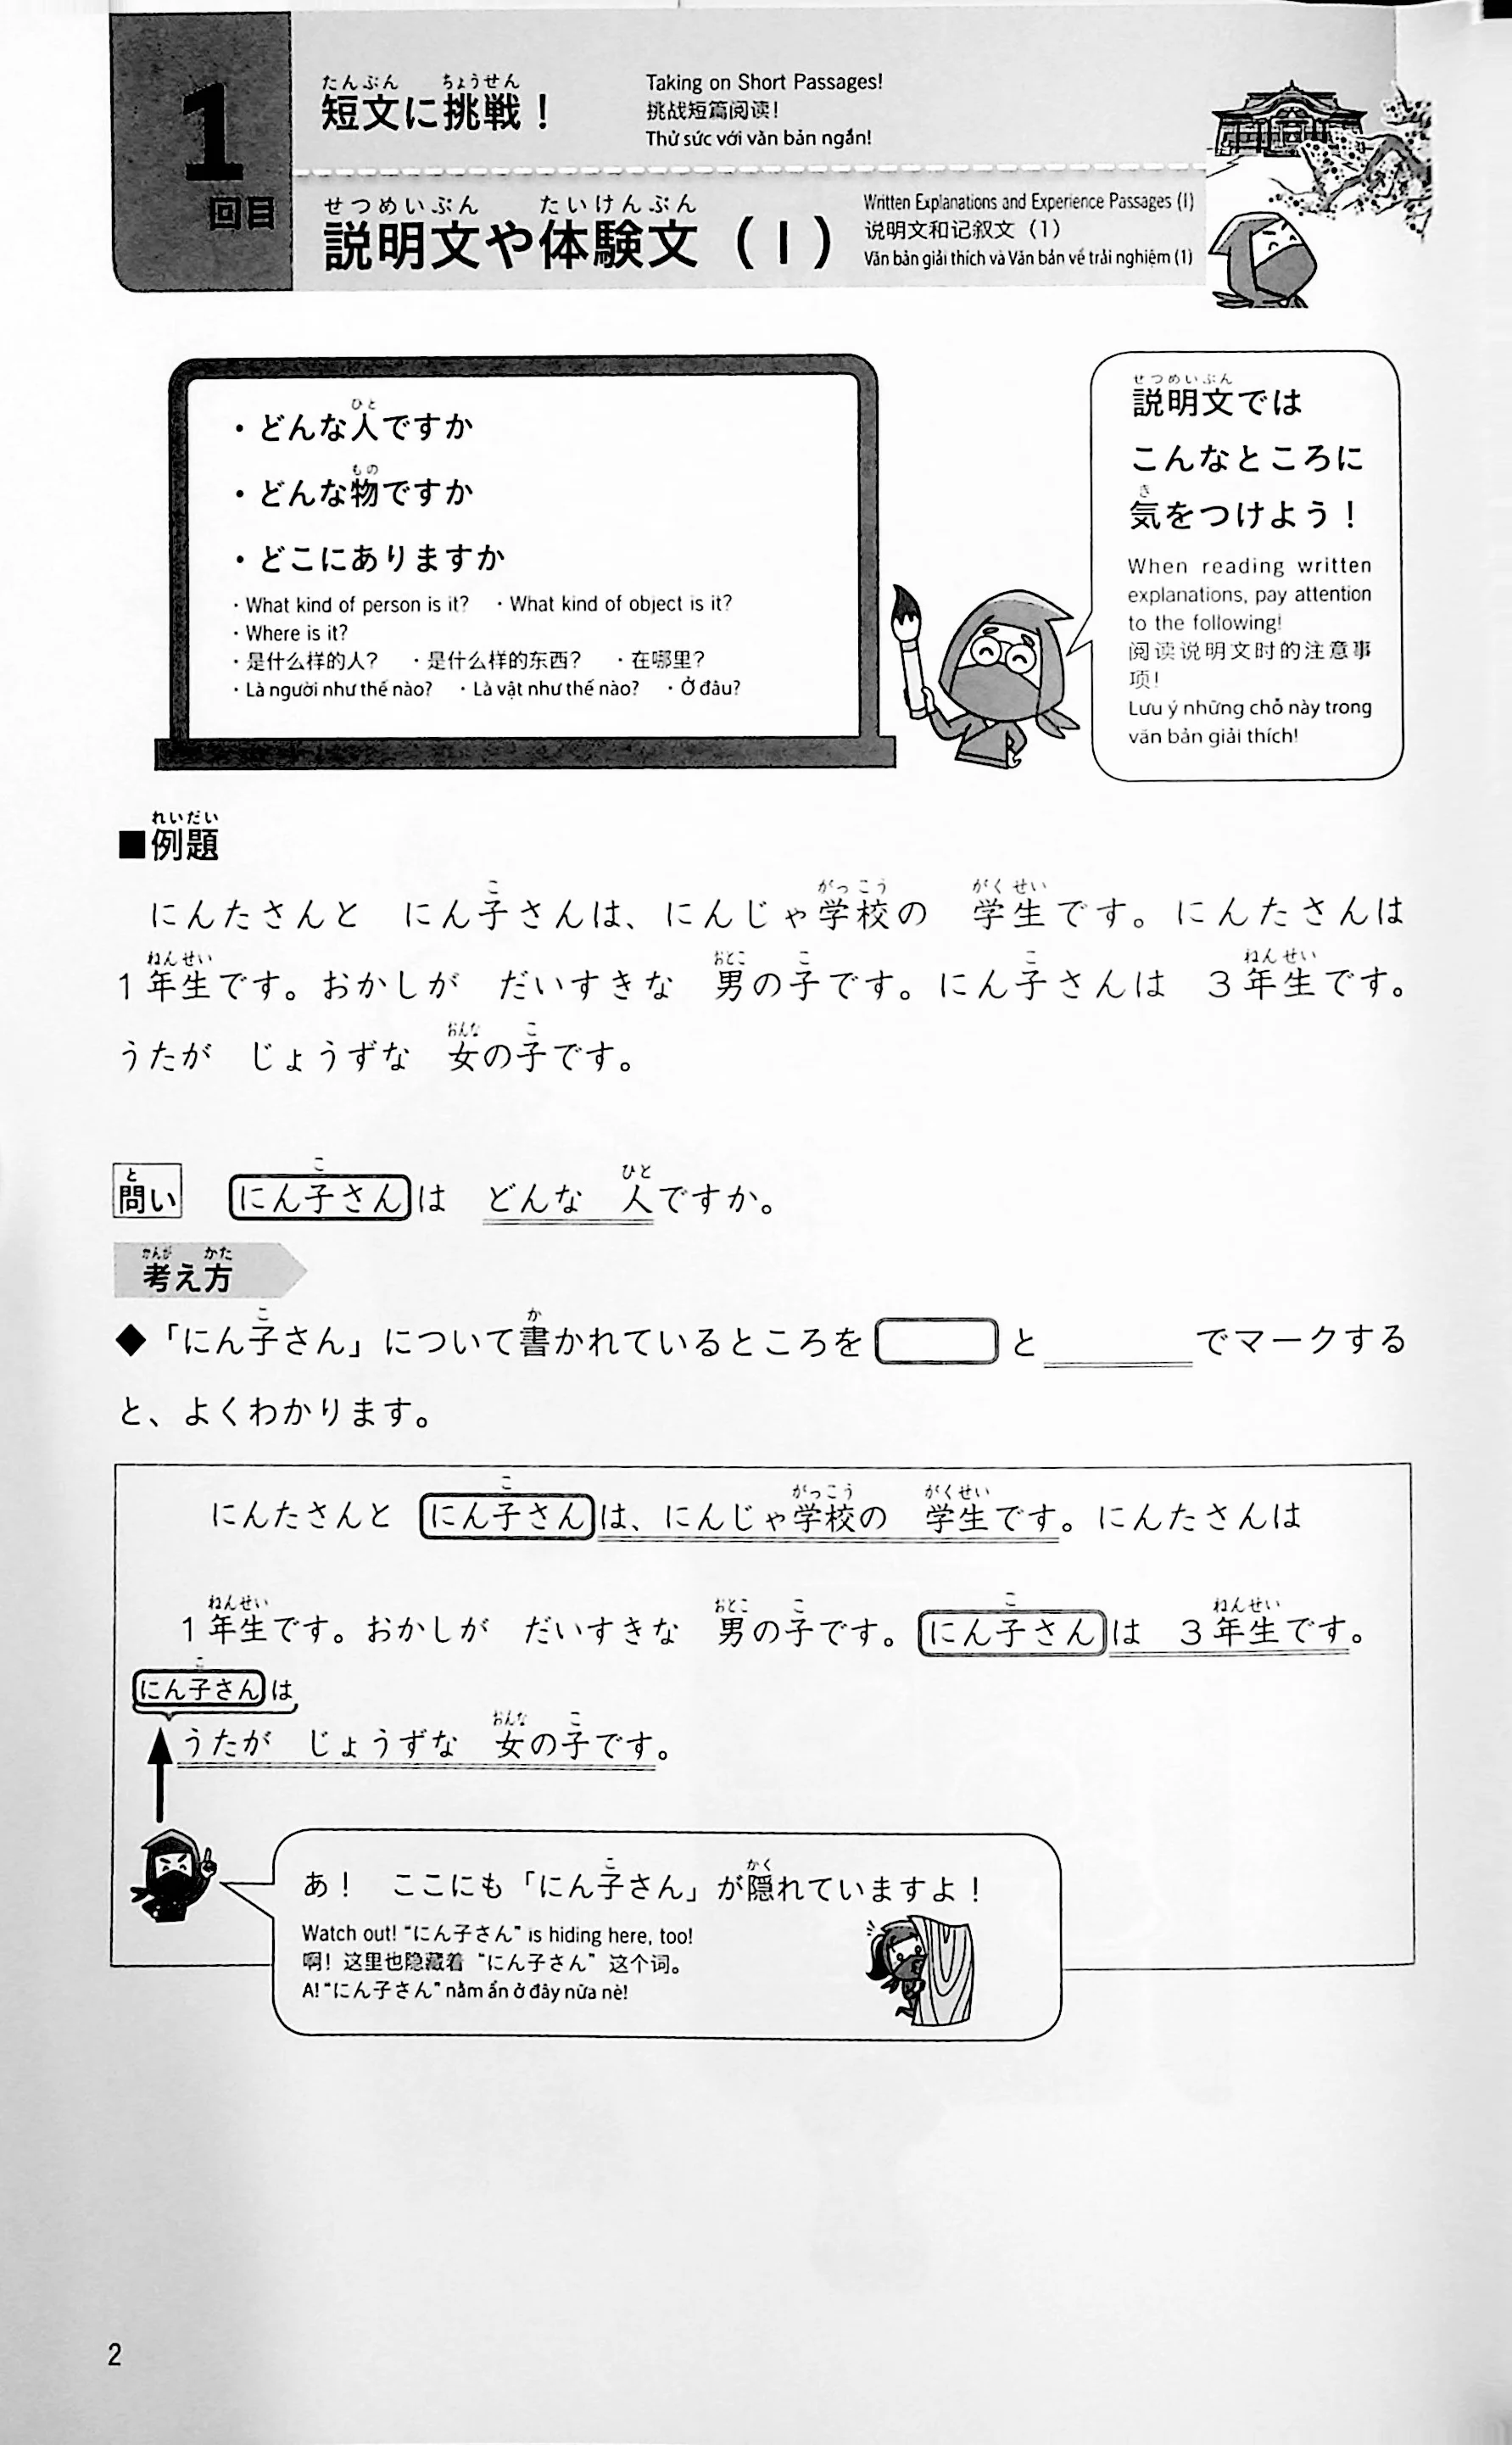 1
回目
たんぶん ちょうせん
短文に挑戦！
Taking on Short Passages!
挑战短篇阅读！
Thử sức với văn bản ngắn!
せつめいぶん たいけんぶん
説明文や体験文（1）
Written Explanations and Experience Passages (1)
说明文和记叙文（1）
Văn bản giải thích và Văn bản về trải nghiệm (1)
ひと
・どんな人ですか
もの
・どんな物ですか
・どこにありますか
・What kind of person is it? ・What kind of object is it?
・Where is it?
・是什么样的人？ ・是什么样的东西？ ・在哪里？
・Là người như thế nào? ・Là vật như thế nào? ・Ở đâu?
せつめいぶん
説明文では
こんなところに
き
気をつけよう！
When reading written
explanations, pay attention
to the following!
阅读说明文时的注意事
项！
Lưu ý những chỗ này trong
văn bản giải thích!
れいだい
■例題
こ がっこう がくせい
にんたさんと にん子さんは、にんじゃ学校の 学生です。にんたさんは
ねんせい おとこ こ こ ねんせい
1年生です。おかしが だいすきな 男の子です。にん子さんは 3年生です。
おんな こ
うたが じょうずな 女の子です。
と こ ひと
問い にん子さんは どんな 人ですか。
かんが かた
考え方
こ か
◆「にん子さん」について書かれているところを と でマークする
と、よくわかります。
こ がっこう がくせい
にんたさんと にん子さんは、にんじゃ学校の 学生です。にんたさんは
ねんせい おとこ こ こ ねんせい
1年生です。おかしが だいすきな 男の子です。にん子さんは 3年生です。
こ
にん子さんは
おんな こ
うたが じょうずな 女の子です。
こ かく
あ！ ここにも「にん子さん」が隠れていますよ！
Watch out! "にん子さん" is hiding here, too!
啊！这里也隐藏着 “にん子さん” 这个词。
A! "にん子さん" nằm ẩn ở đây nữa nè!
2